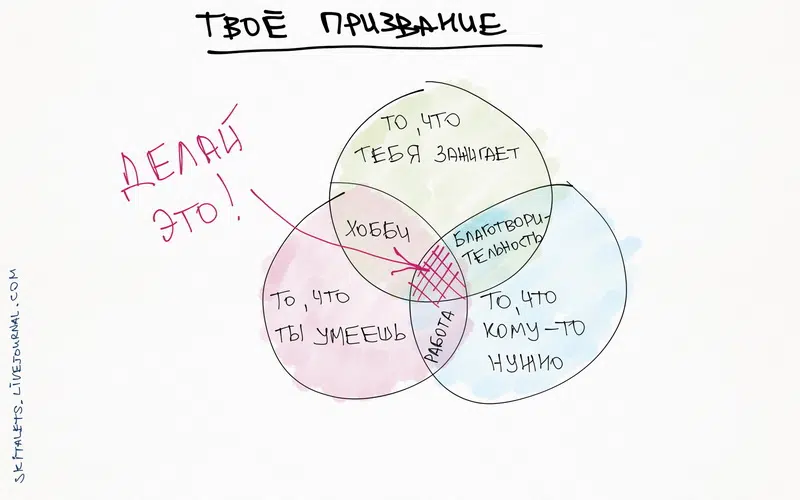 ТВОЁ ПРИЗВАНИЕ
ТО, ЧТО
ТЕБЯ ЗАЖИГАЕТ
ДЕЛАЙ
ЭТО!
ХОББИ
БЛАГОТВОРИ-
ТЕЛЬНОСТЬ
ТО, ЧТО
ТЫ УМЕЕШЬ
РАБОТА
ТО, ЧТО
КОМУ-ТО
НУЖНО
SKITALETS.LIVEJOURNAL.COM